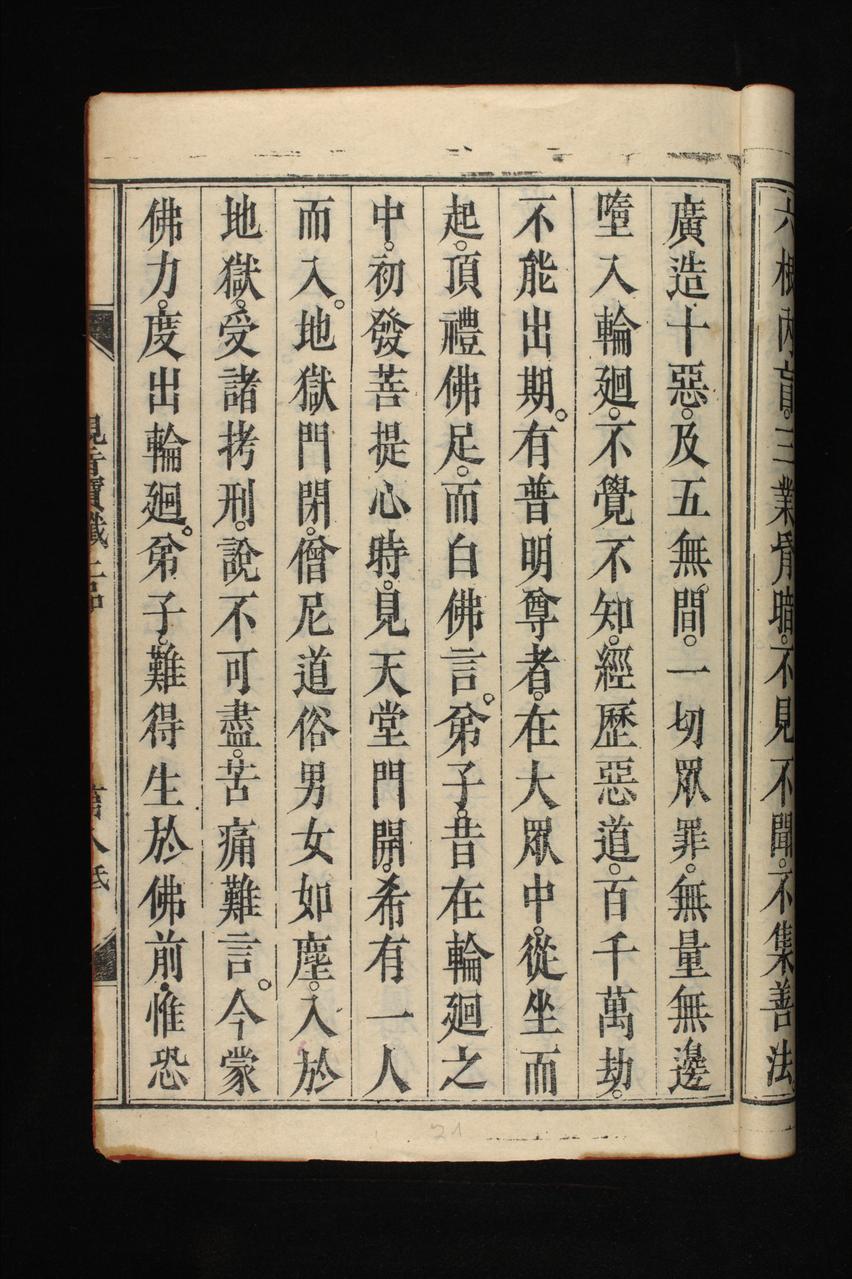 六根內盲。三業骨職。不見不聞。不集善法。
廣造十惡。及五無間。一切眾罪。無量無邊
墮入輪廻。不覺不知。經歷惡道。百千萬劫。
不能出期。有普明尊者。在大眾中。從坐而
起。頂禮佛足。而白佛言。弟子。昔在輪廻之
中。初發菩提心時。見天堂門開。希有一人
而入。地獄門閉。僧尼道俗男女如塵。入於
地獄。受諸拷刑。說不可盡。苦痛難言。今蒙
佛力。度出輪廻。弟子。難得生於佛前。惟恐
觀音寶懺上品
第八